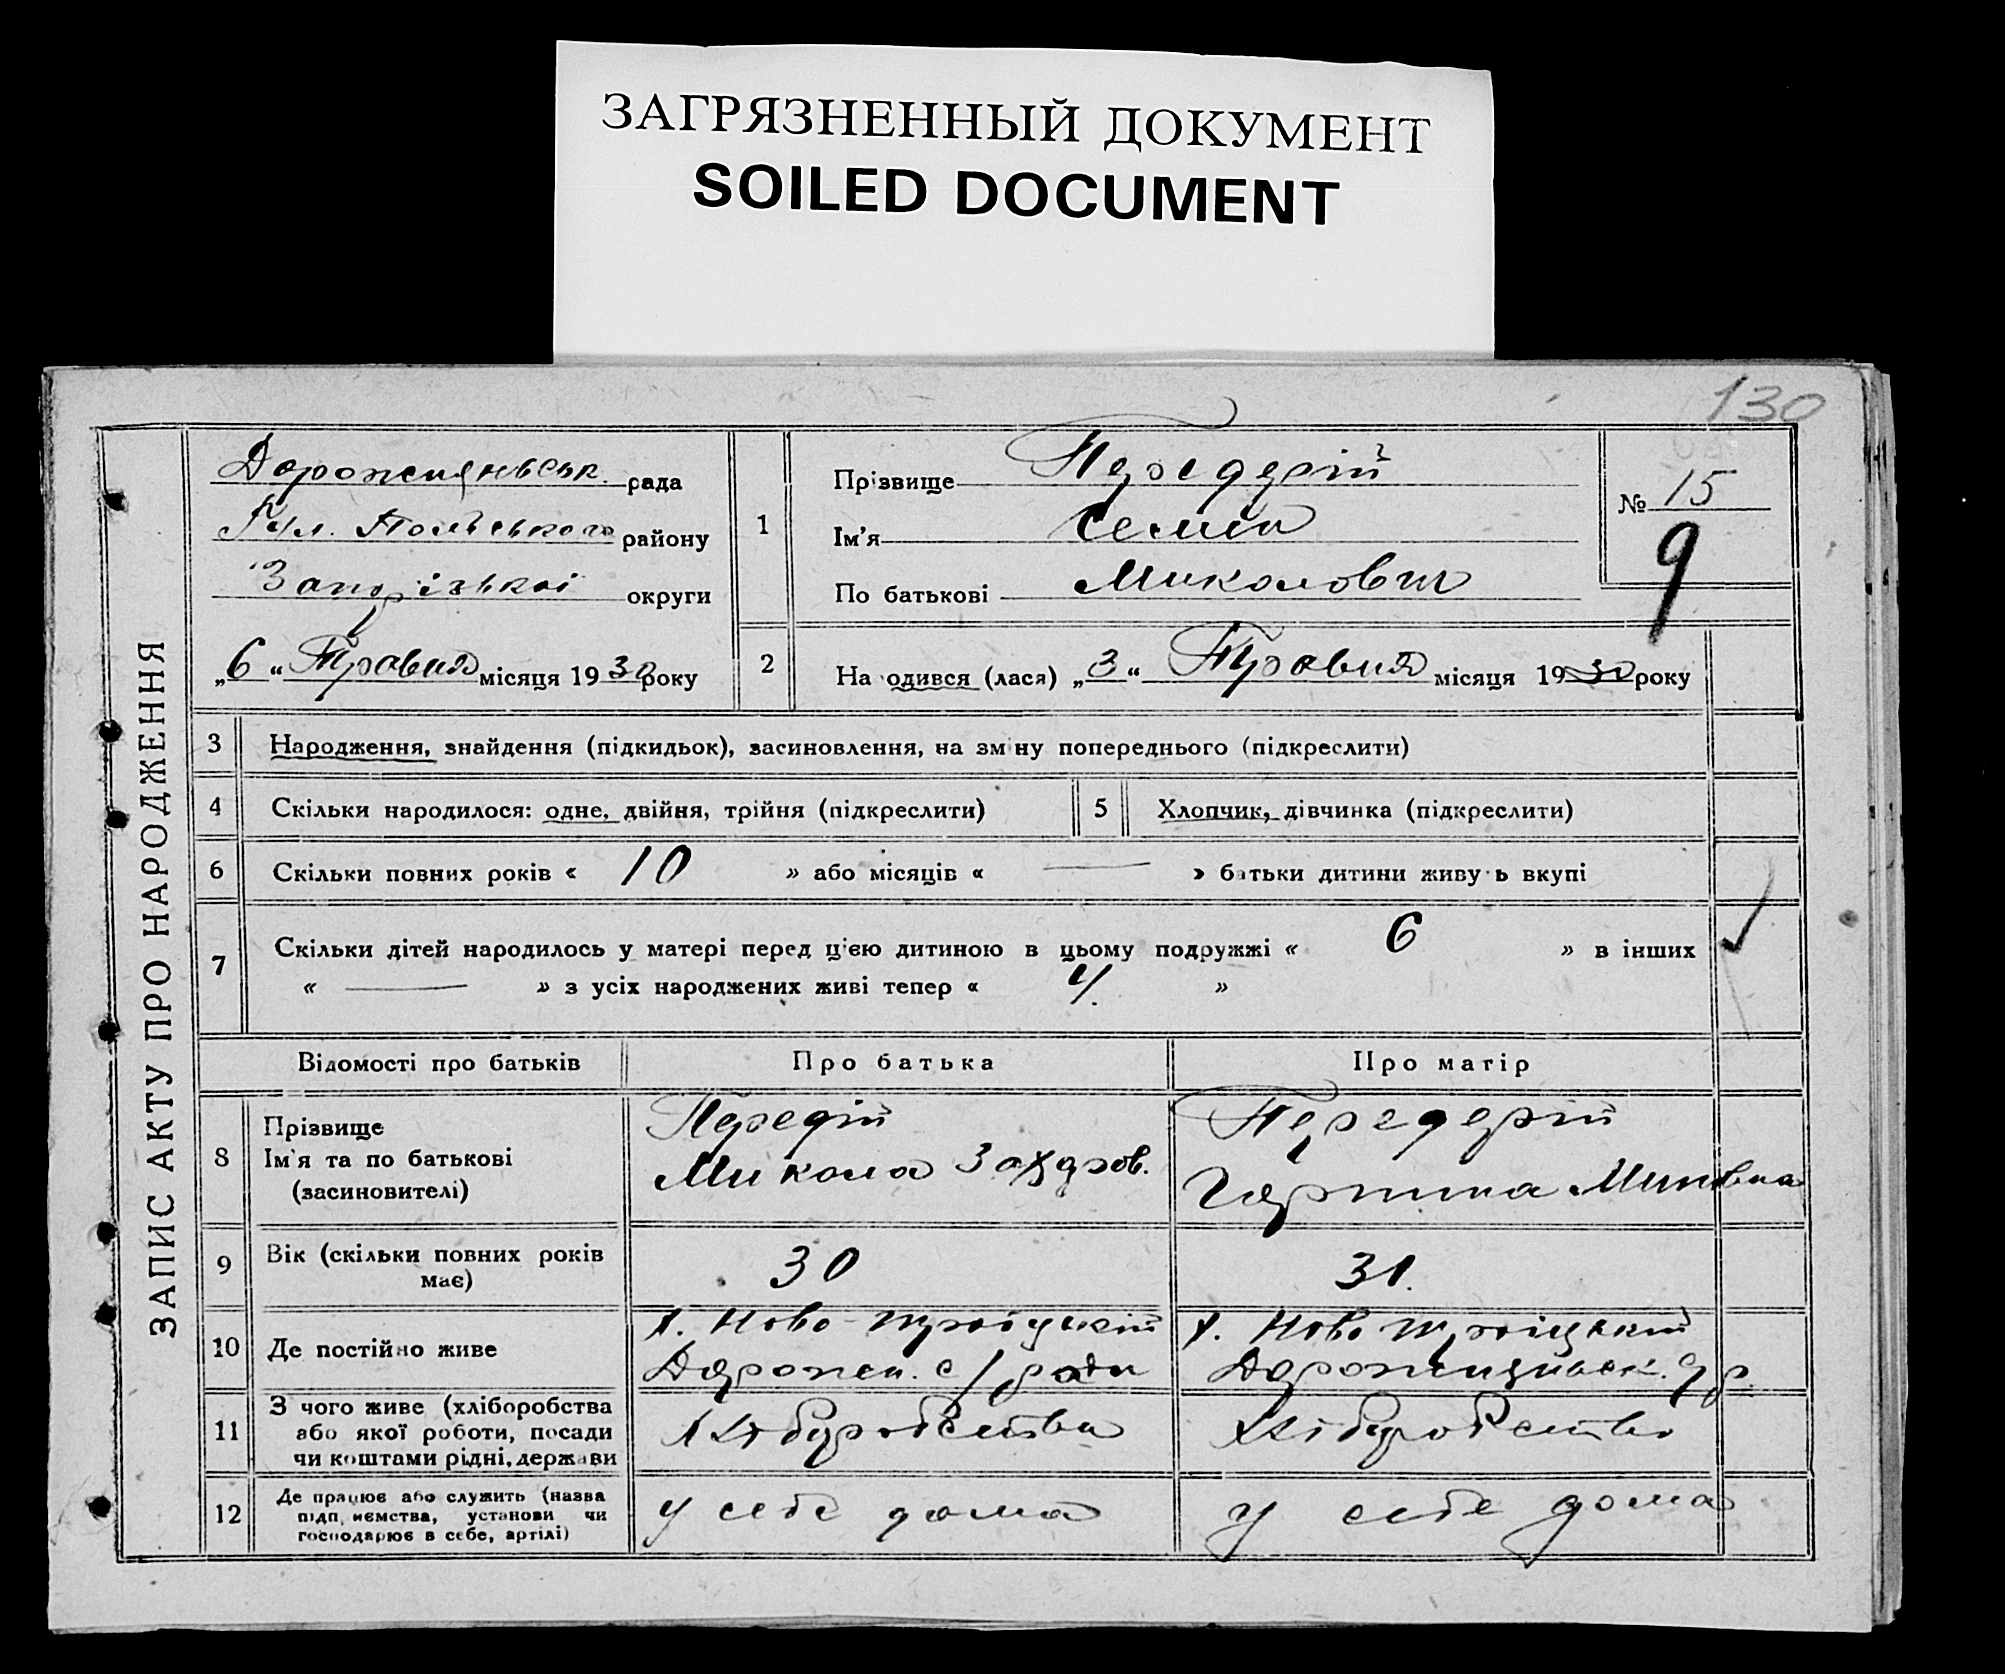 ЗАГРЯЗНЕННЫЙ ДОКУМЕНТ
SOILED DOCUMENT
130
ЗАПИС АКТУ ПРО НАРОДЖЕННЯ
Дорожнянськ. рада
Гул. Польського району
Запорізької округи
„6“ Травня місяця 1930 року
1
Прізвище Передерій
Ім'я Семен
По батькові Миколович
№ 15
9
2
На одився (лася) „3“ Травня місяця 1930 року
3 Народження, знайдення (підкидьок), засиновлення, на зміну попереднього (підкреслити)
4 Скільки народилося: одне, двійня, трійня (підкреслити)
5 Хлопчик, дівчинка (підкреслити)
6 Скільки повних років « 10 » або місяців « — » батьки дитини живуть вкупі
7 Скільки дітей народилось у матері перед цією дитиною в цьому подружжі « 6 » в інших
« — » з усіх народжених живі тепер « 4. »
Відомості про батьків Про батька Про матір
8 Прізвище
Ім'я та по батькові
(засиновителі)
Передій
Микола Захаров.
Передерій
Горпина Миновна
9 Вік (скільки повних років
має)
30
31.
10 Де постійно живе
х. Ново-Троїцькій
Дорожн. с/ради
х. Ново Троїцькій
Дорожнянськ.
11 З чого живе (хліборобства
або якої роботи, посади
чи коштами рідні, держави
Хліборобства
Хліборобство
12 Де працює або служить (назва
підп. иємства, установи чи
господарює в себе, артілі)
у себе дома
у себе дома